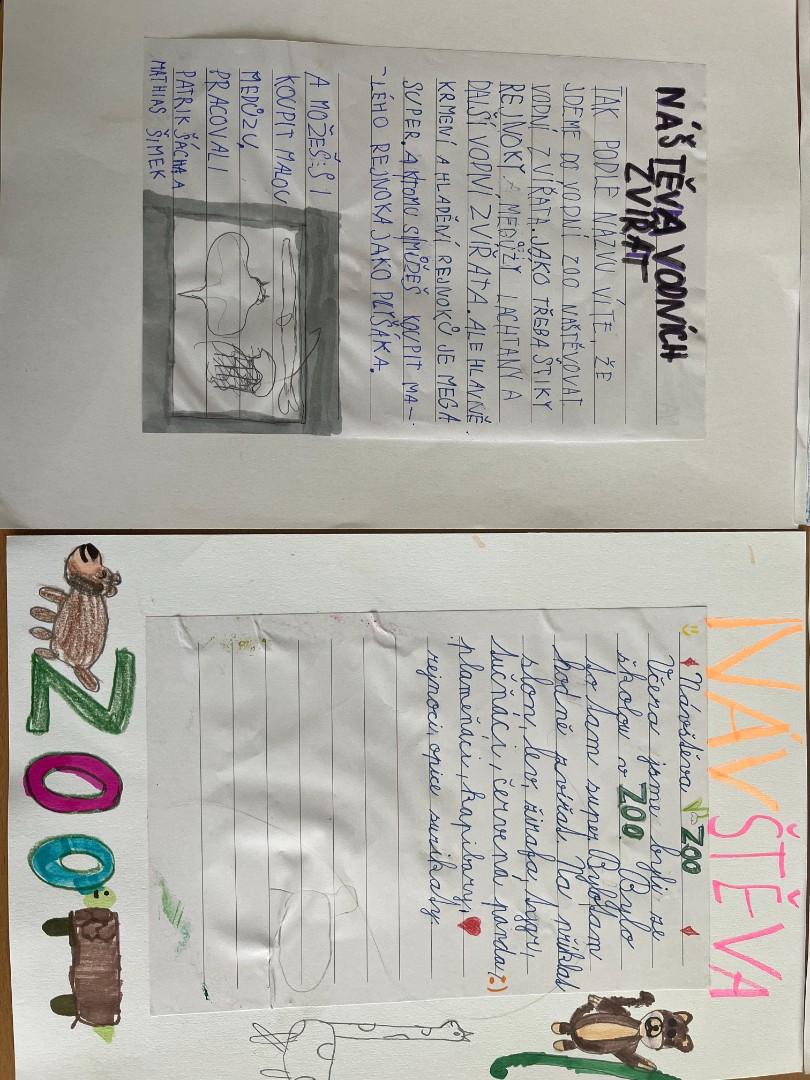 NÁŠTĚVA VODNÍCH
ZVÍŘAT
TAK PODLE NÁZVU VÍTE, ŽE
JDEME DO VODNÍ ZOO NAŠTĚVOVAT
VODNÍ ZVÍŘATA. JAKO TŘEBA ŠTIKY
REJNOKY, MEDŮZY LACHTANY A
DALŠÍ VODNÍ ZVÍŘATA. ALE HLAVNĚ
KRMENÍ A HLADĚNÍ REJNOKŮ JE MEGA
SUPER. A KTOMU SI MŮŽEŠ KOUPIT MA-
-LÉHO REJNOKA JAKO PLYŠÁKA.
A MOŽEŠ SI
KOUPIT MALOU
MEDŮZU.
PRACOVALI
PATRIK ŠÁCHA A
MATHIAS ŠIMEK
NÁVŠTĚVA
Návštěva V ZOO
Včera jsme byli se
školou v ZOO Bylo
to tam super. Bylo tam
hodně zvířat Na příklad
slon, lev, žirafa, tygr,
tučňáci, červená panda :)
plameňáci, kapibary,
rejnoci, opice surikaty.
ZOO